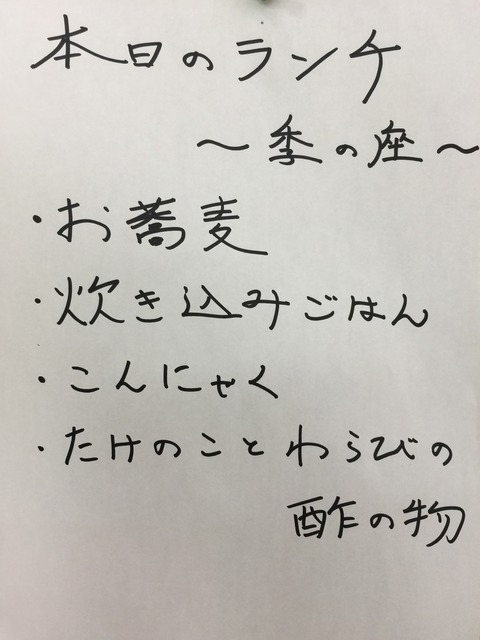 本日のランチ
〜季の座〜
・お蕎麦
・炊き込みごはん
・こんにゃく
・たけのことわらびの
酢の物